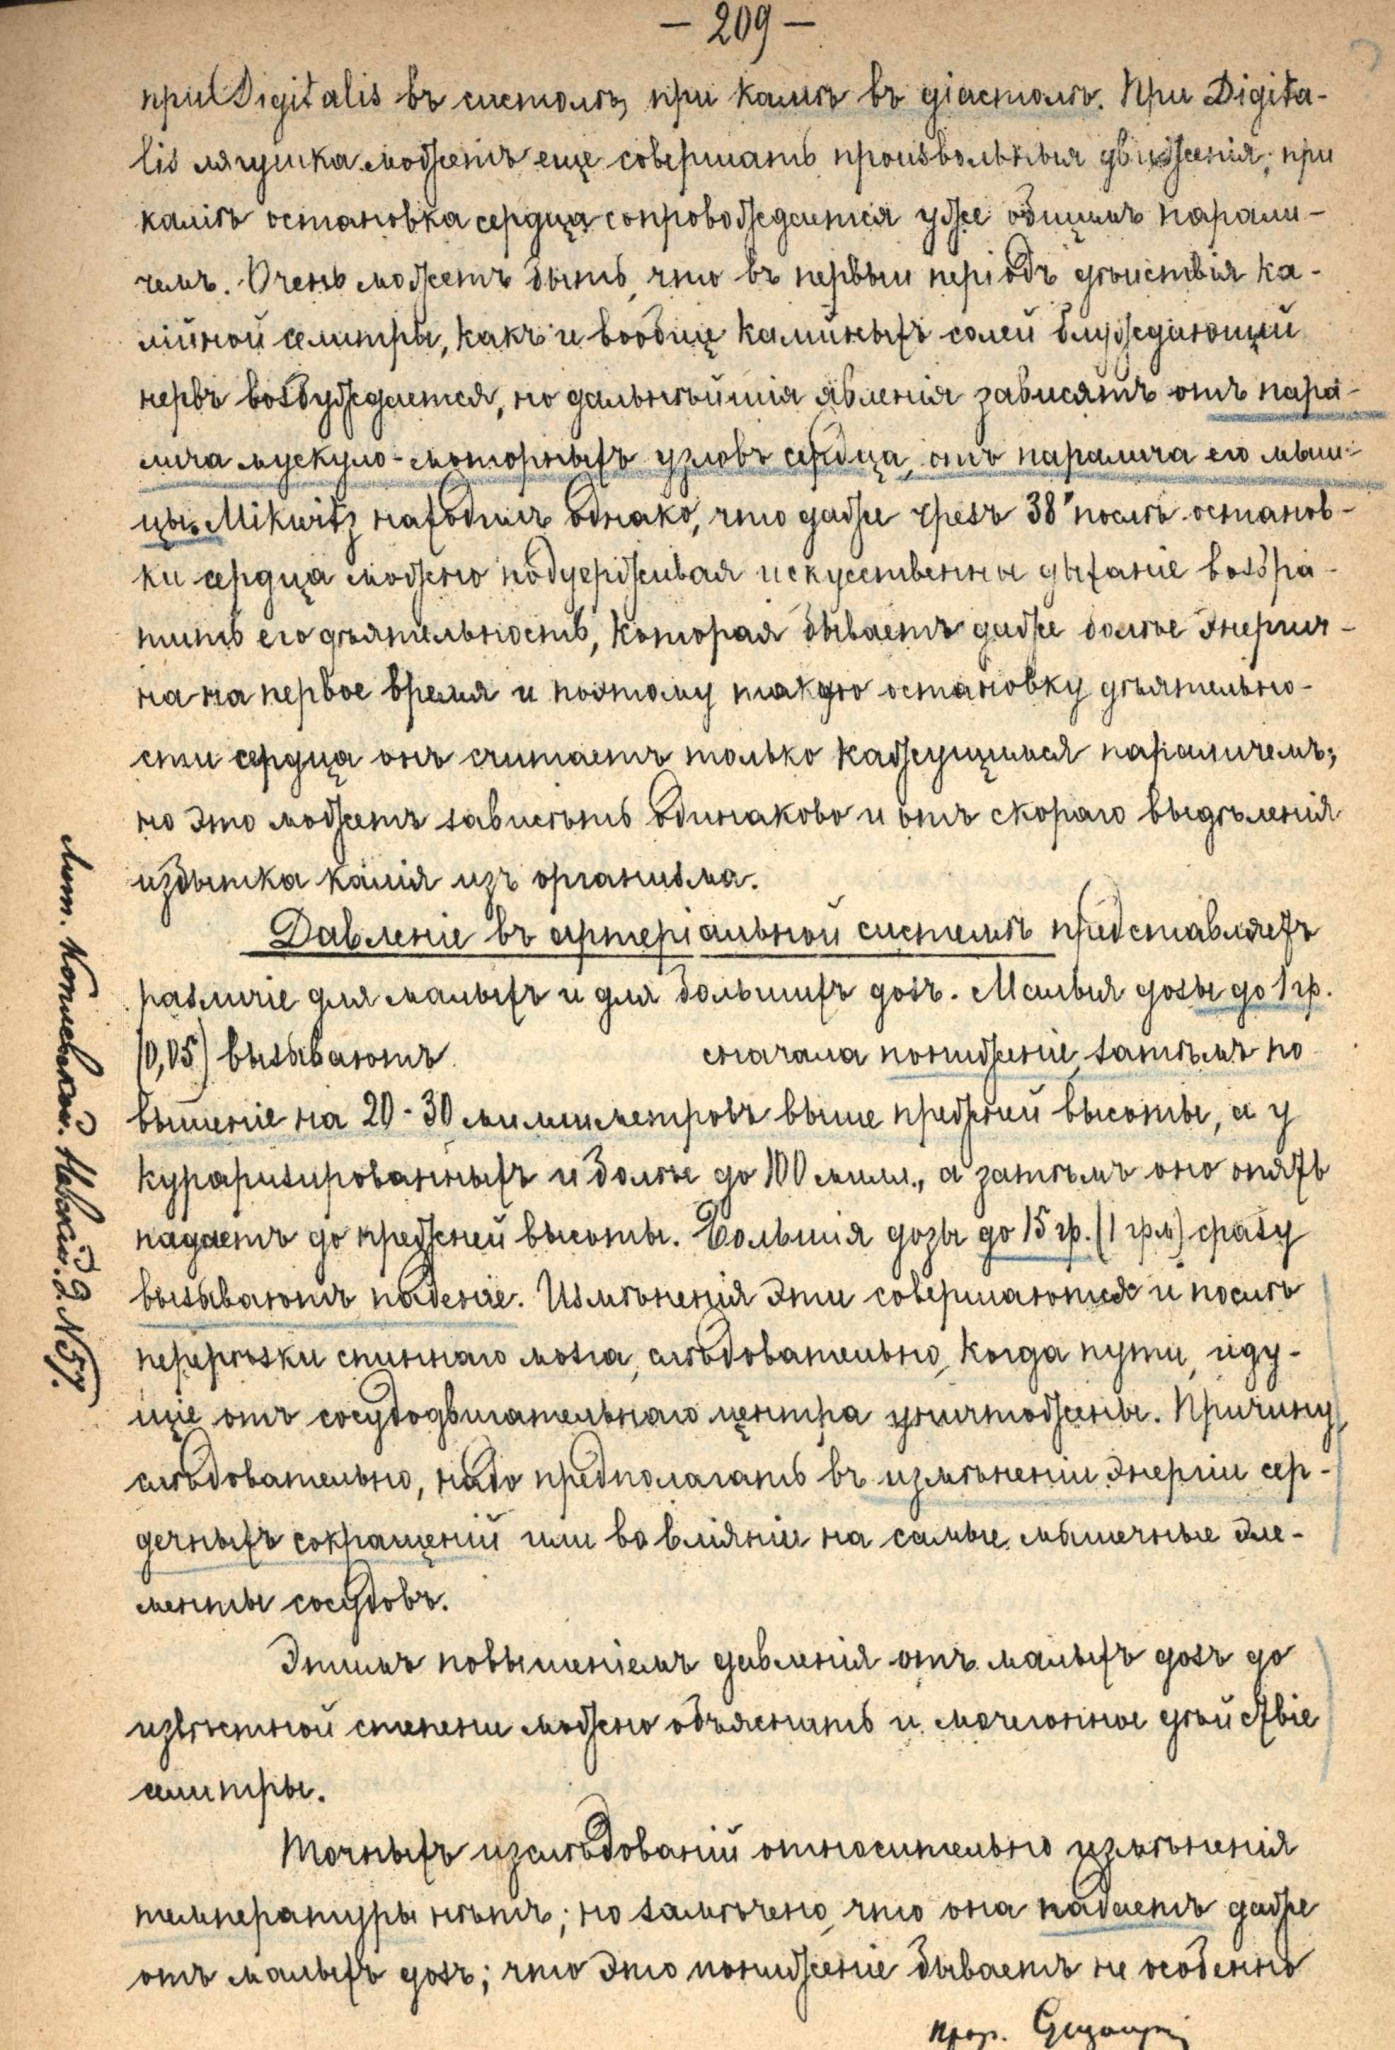 — 209 —
при Digitalis въ систолѣ, при каліѣ въ діастолѣ. При Digita-
lis лягушка можетъ еще совершать произвольныя движенія; при
каліѣ остановка сердца сопровождается уже общимъ парали-
чемъ. Очень можетъ быть, что въ первый періодъ дѣйствія ка-
лійной селитры, какъ и вообще калійныхъ солей блуждающій
нервъ возбуждается, но дальнѣйшія явленія зависятъ отъ пара-
лича мускуло-моторныхъ узловъ сердца, отъ паралича его мыш-
цы. Mikwitz находилъ однако, что даже чрезъ 38" послѣ останов-
ки сердца можно поддерживая искусственны дыханіе возвра-
тить его дѣятельность, которая бываетъ даже болѣе энергич-
на на первое время и поэтому такую остановку дѣятельно-
сти сердца онъ считаетъ только кажущимся параличемъ;
но это можетъ зависѣть одинаково и отъ скораго выдѣленія
избытка калія изъ организма.
Давленіе въ артеріальной системѣ представляетъ
различіе для малыхъ и для большихъ дозъ. Малыя дозы до 1 гр.
(0,05) вызываютъ сначала пониженіе, затѣмъ по
вышеніе на 20-30 миллиметровъ выше прежней высоты, а у
кураризированныхъ и болѣе до 100 милл., а затѣмъ оно опять
падаетъ до прежней высоты. Большія дозы до 15 гр. (1 грм) сразу
вызываютъ паденіе. Измѣненія эти совершаются и послѣ
перерѣзки спиннаго мозга, слѣдовательно, когда пути, иду-
щіе отъ сосудодвигательнаго центра уничтожены. Причину,
слѣдовательно, надо предполагать въ измѣненіи энергіи сер-
дечныхъ сокращеній или во вліяніи на самые мышечные эле-
менты сосудовъ.
Этимъ повышеніемъ давленія отъ малыхъ дозъ до
извѣстной степени можно объяснить и мочегонное дѣйствіе
селитры.
Точныхъ изслѣдованій относительно измѣненія
температуры нѣтъ; но замѣчено, что она падаетъ даже
отъ малыхъ дозъ; что это пониженіе бываетъ не особенно
проф.
Лит. Невскій. Д № 57.